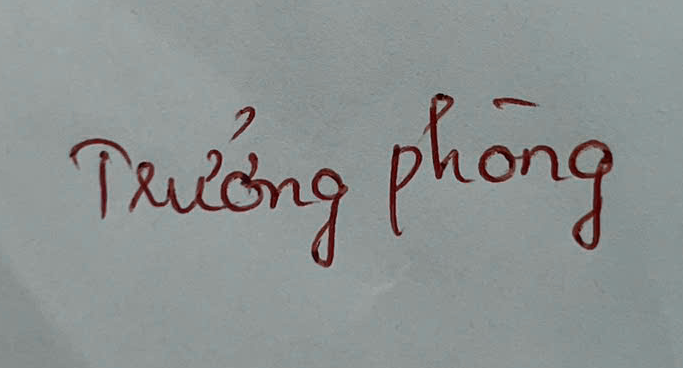 Trưởng phòng